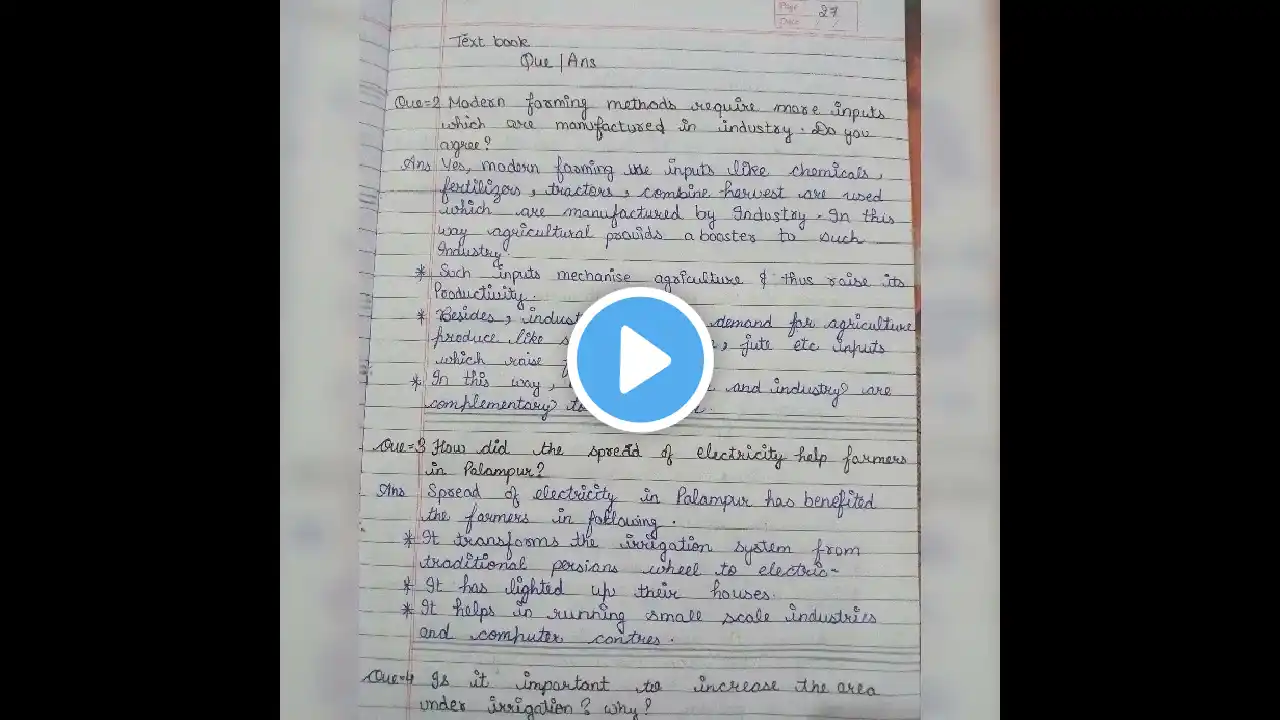 Page 27
Date / /
Text book
Que | Ans
Que=2 Modern forming methods require more inputs
which are manufactured in industry. Do you
agree?
Ans Yes, modern forming use inputs like chemicals,
fertilizers, tractors, combine harvest are used
which are manufactured by Industry. In this
way agricultural provids a booster to such
Industry.
* Such inputs mechanise agriculture & thus raise its
Productivity.
* Besides, indust demand for agriculture
produce like jute etc inputs
which raise
* In this way, and industry are
complementary
Que=3 How did the spread of electricity help farmers
in Palampur?
Ans Spread of electricity in Palampur has benefited
the farmers in following.
* It transforms the irrigation system from
traditional persians wheel to electric-
* It has lighted up their houses.
* It helps in running small scale industries
and computer contres.
Que=4 Is it important to increase the area
under irrigation? why?